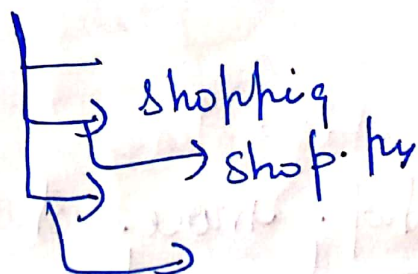 shoppig
shop.py